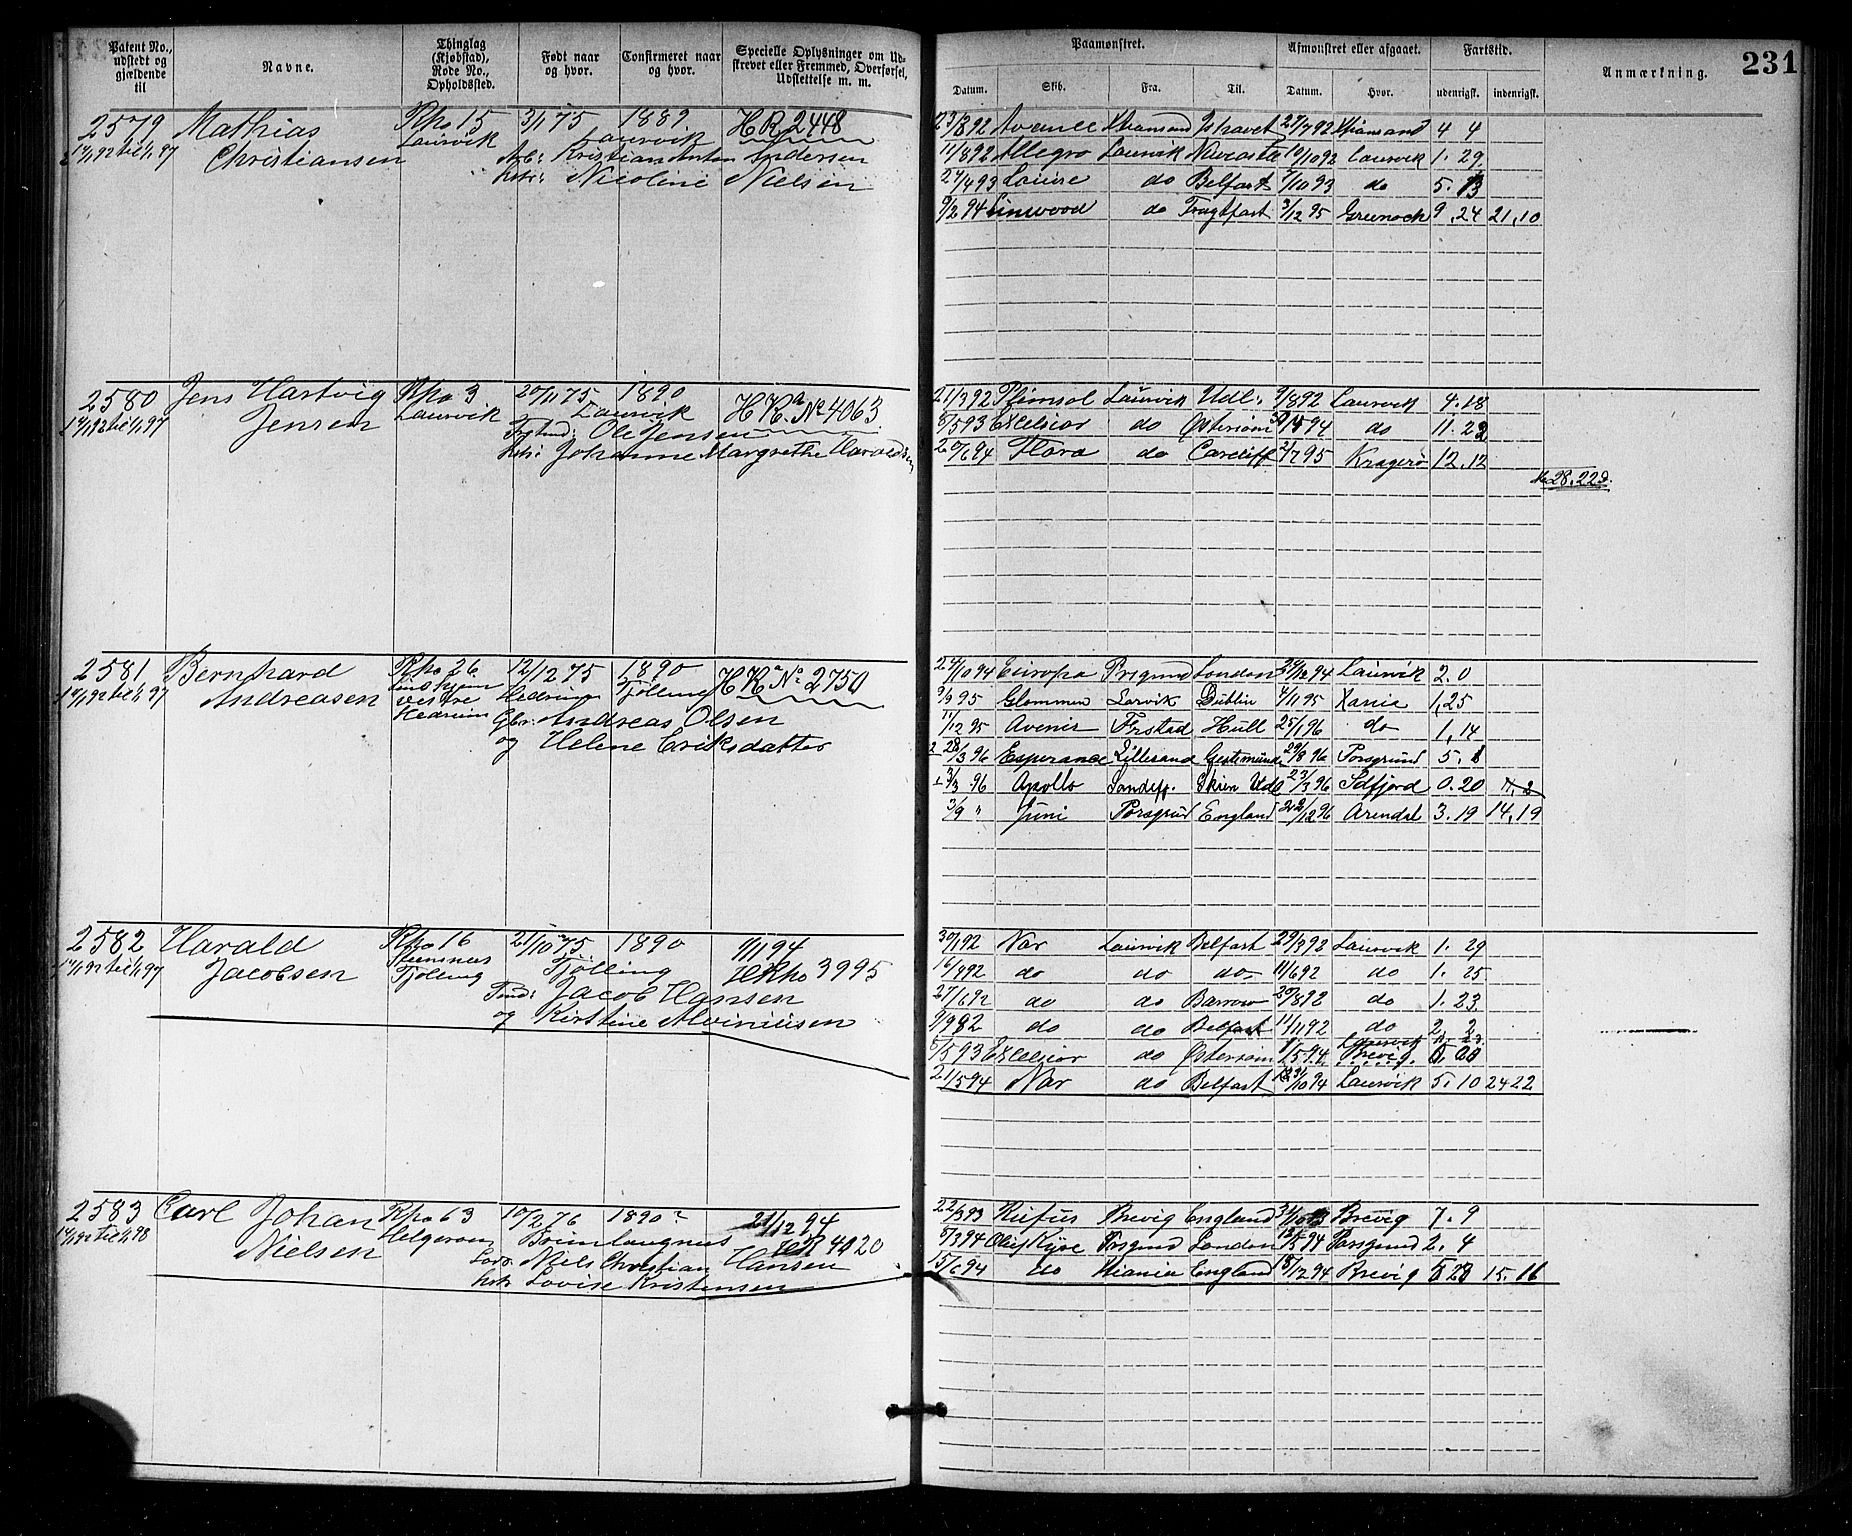 Patent No., udstedt og gjældende til
Navne.
Thinglag (Kjøbstad), Rode No., Opholdssted.
Født naar og hvor.
Confirmeret naar og hvor.
Specielle Oplysninger om Udskrevet eller Fremmed, Overførsel, Udslettelse m. m.
Paamønstret.
Afmønstret eller afgaaet.
Fartstid.
Anmærkning.
231
Datum. Skib. Fra. Til. Datum. Hvor. udenrigsk. indenrigsk.
2579 Mathias Rho 15 3/1 75 1889 HR 2448
14/1 92 til 1/1 97 Christiansen Laurvik Laurvik
Arb: Kristian Anton Andersen
hstr: Nicoline Nielsen
Avance Xtiansand Ishavet 27/7 92 Xtiansand 4 4
11/8 92 Allegro Laurvik Newcastle 10/10 92 Laurvik 1. 29.
27/4 93 Laura do Belfast 7/10 93 do 5. 13
9/2 94 Linwood do Fragtfart 3/12 95 Greenock 9. 24 21,10
2580 Jens Hartvig Rho 3 20/11 75 1890
14/1 92 til 1/1 97 Jensen Laurvik Laurvik HKa No 4063
Ole Jensen
hstr: Johanne Margrethe Haraldsen
21/3 92 Plimsol Laurvik Udl. 9/8 92 Laurvik 4. 18
5/5 93 Excelsior do Østersøen 94 do 11. 22
20/6 94 Flora do Cardiff 2/7 95 Kragerø 12. 12
28. 22 d.
2581 Bernhard Rho 26 12/12 75 1890 HKa No 2750
14/1 92 til 1/1 97 Andreasen vestre Hedrum Hedrum Tjølling
Gbr: Andreas Olsen
og Helene Eriksdatter
24/10 94 Europa Prsgrund London 30/12 94 Laurvik 2. 0
9/9 95 Glommen Larvik Dublin 4/11 95 Xania 1,25
11/12 95 Avenir Frstad Hull 25/1 96 do 1,14
2 28/3 96 Esperance Lillesand Gestemünde 29/8 96 Porsgrund 5. 1
1 3/3 96 Apollo Sandefj. Skien Udl 23/3 96 Idfjord 0. 20
3/9 " Juni Porsgrund England 22/12 96 Arendal 3. 19 14,19
2582 Harald Rho 16 21/10 75 1890 1/1 94
14/1 92 til 1/1 97 Jacobsen Tjølling Tjølling HRho 3995
Tind: Jacob Hansen
og Kirstine
30/1 92 Nor Laurvik Belfast 29/3 92 Laurvik 1. 29
16/4 92 do do do 11/6 92 do 1. 25
27/6 92 do do Barrow 20/8 92 do 1. 23.
9/9 82 do do Belfast 11/11 92 do 2. 2
5/5 93 Excelsior do Østersøen Laurvik Brevig
21/5 94 Nor do Belfast 31/10 94 Laurvik 5. 10 24 22
2583 Carl Johan Rho 63 10/2 76 1890? 21/12 94
14/1 92 til 1/1 98 Nielsen Helgeroen Brunlangnæs HR 4020
Lods Niels Christian Hansen
hstr Lovise Kristensen
22/3 93 Rufus Brevig England Brevig 7. 9
5/3 94 Olaf Kyrre Prsgrund London Porsgrund 2. 4
15/6 94 do Xiania England 18/12 94 Brevig 15. 16